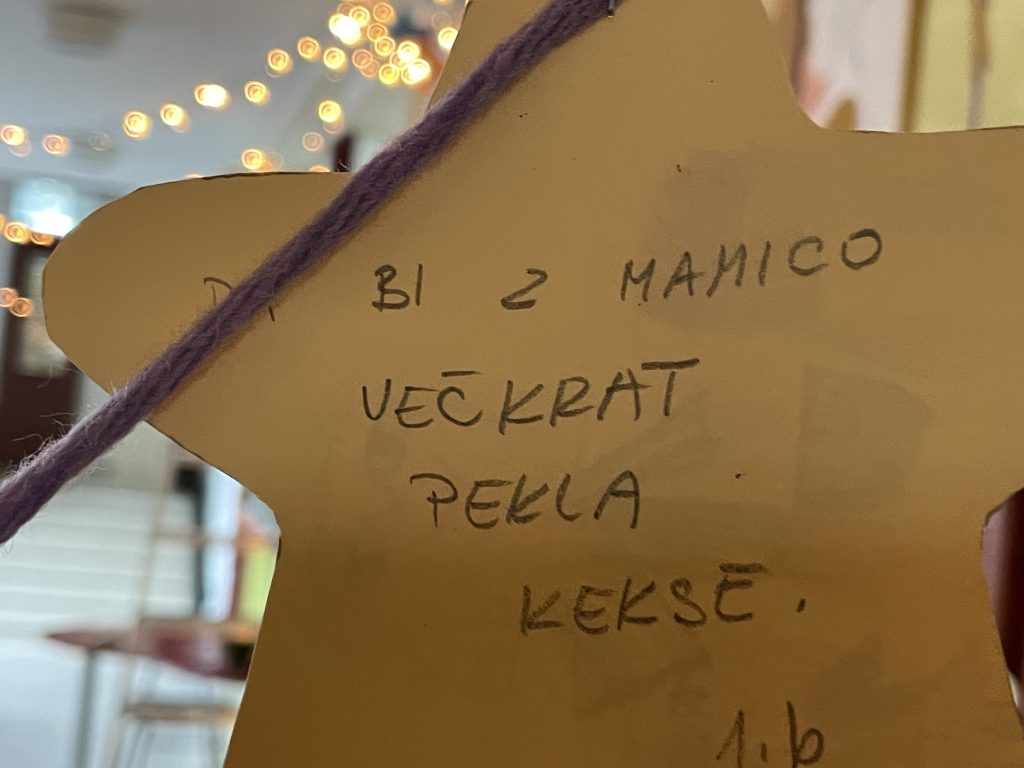 BI Z MAMICO
VEČKRAT
PEKLA
KEKSE.
1.b